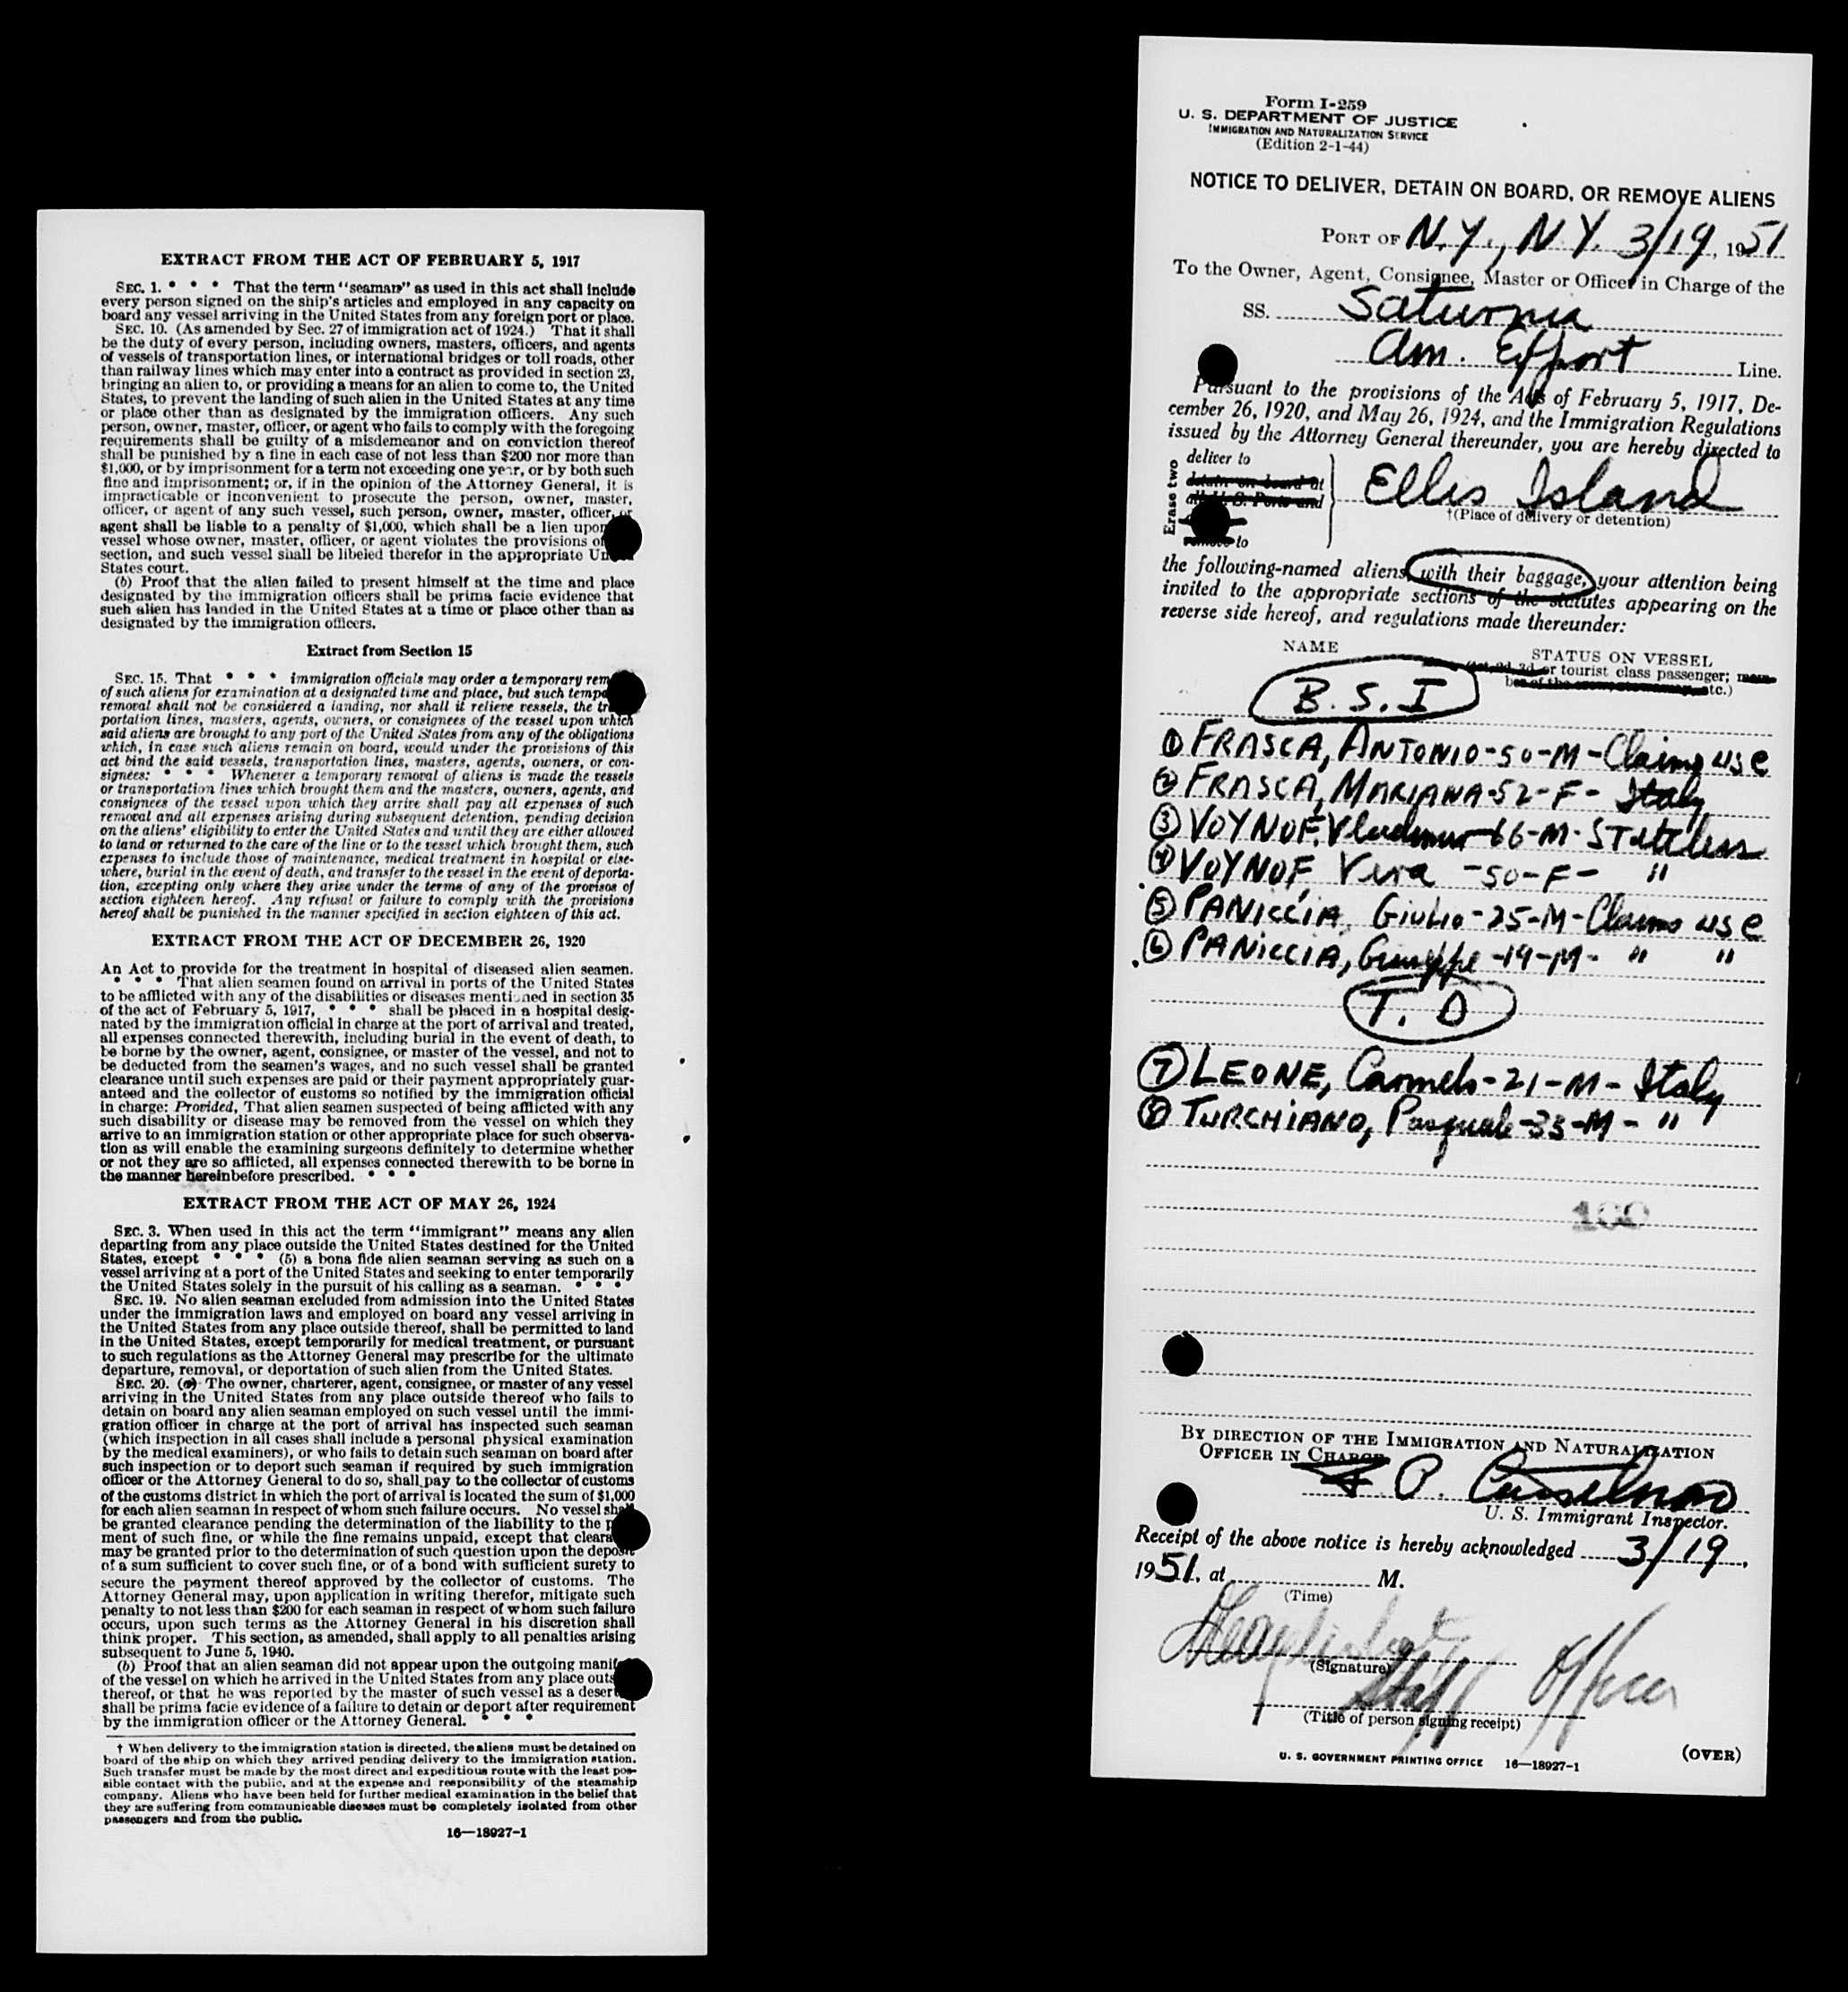 EXTRACT FROM THE ACT OF FEBRUARY 5, 1917
SEC. 1. * * * That the term "seaman" as used in this act shall include
every person signed on the ship's articles and employed in any capacity on
board any vessel arriving in the United States from any foreign port or place.
SEC. 10. (As amended by Sec. 27 of immigration act of 1924.) That it shall
be the duty of every person, including owners, masters, officers, and agents
of vessels of transportation lines, or international bridges or toll roads, other
than railway lines which may enter into a contract as provided in section 23,
bringing an alien to, or providing a means for an alien to come to, the United
States, to prevent the landing of such alien in the United States at any time
or place other than as designated by the immigration officers. Any such
person, owner, master, officer, or agent who fails to comply with the foregoing
requirements shall be guilty of a misdemeanor and on conviction thereof
shall be punished by a fine in each case of not less than $200 nor more than
$1,000, or by imprisonment for a term not exceeding one year, or by both such
fine and imprisonment; or, if in the opinion of the Attorney General, it is
impracticable or inconvenient to prosecute the person, owner, master,
officer, or agent of any such vessel, such person, owner, master, officer, or
agent shall be liable to a penalty of $1,000, which shall be a lien upon
vessel whose owner, master, officer, or agent violates the provisions of
section, and such vessel shall be libeled therefor in the appropriate
States court.
(b) Proof that the alien failed to present himself at the time and place
designated by the immigration officers shall be prima facie evidence that
such alien has landed in the United States at a time or place other than as
designated by the immigration officers.
Extract from Section 15
SEC. 15. That * * * immigration officials may order a temporary
of such aliens for examination at a designated time and place, but such
removal shall not be considered a landing, nor shall it relieve vessels, the
portation lines, masters, agents, owners, or consignees of the vessel upon which
said aliens are brought to any port of the United States from any of the obligations
which, in case such aliens remain on board, would under the provisions of this
act bind the said vessels, transportation lines, masters, agents, owners, or con-
signees: * * * Whenever a temporary removal of aliens is made the vessels
or transportation lines which brought them and the masters, owners, agents, and
consignees of the vessel upon which they arrive shall pay all expenses of such
removal and all expenses arising during subsequent detention, pending decision
on the aliens' eligibility to enter the United States and until they are either allowed
to land or returned to the care of the line or to the vessel which brought them, such
expenses to include those of maintenance, medical treatment in hospital or else-
where, burial in the event of death, and transfer to the vessel in the event of deporta-
tion, excepting only where they arise under the terms of any of the provisos of
section eighteen hereof. Any refusal or failure to comply with the provisions
hereof shall be punished in the manner specified in section eighteen of this act.
EXTRACT FROM THE ACT OF DECEMBER 26, 1920
An Act to provide for the treatment in hospital of diseased alien seamen.
* * * That alien seamen found on arrival in ports of the United States
to be afflicted with any of the disabilities or diseases mentioned in section 35
of the act of February 5, 1917, * * * shall be placed in a hospital desig-
nated by the immigration official in charge at the port of arrival and treated,
all expenses connected therewith, including burial in the event of death, to
be borne by the owner, agent, consignee, or master of the vessel, and not to
be deducted from the seamen's wages, and no such vessel shall be granted
clearance until such expenses are paid or their payment appropriately guar-
anteed and the collector of customs so notified by the immigration official
in charge: Provided, That alien seamen suspected of being afflicted with any
such disability or disease may be removed from the vessel on which they
arrive to an immigration station or other appropriate place for such observa-
tion as will enable the examining surgeons definitely to determine whether
or not they are so afflicted, all expenses connected therewith to be borne in
the manner hereinbefore prescribed. * * *
EXTRACT FROM THE ACT OF MAY 26, 1924
SEC. 3. When used in this act the term "immigrant" means any alien
departing from any place outside the United States destined for the United
States, except * * * (5) a bona fide alien seaman serving as such on a
vessel arriving at a port of the United States and seeking to enter temporarily
the United States solely in the pursuit of his calling as a seaman. * * *
SEC. 19. No alien seaman excluded from admission into the United States
under the immigration laws and employed on board any vessel arriving in
the United States from any place outside thereof, shall be permitted to land
in the United States, except temporarily for medical treatment, or pursuant
to such regulations as the Attorney General may prescribe for the ultimate
departure, removal, or deportation of such alien from the United States.
SEC. 20. (a) The owner, charterer, agent, consignee, or master of any vessel
arriving in the United States from any place outside thereof who fails to
detain on board any alien seaman employed on such vessel until the immi-
gration officer in charge at the port of arrival has inspected such seaman
(which inspection in all cases shall include a personal physical examination
by the medical examiners), or who fails to detain such seaman on board after
such inspection or to deport such seaman if required by such immigration
officer or the Attorney General to do so, shall pay to the collector of customs
of the customs district in which the port of arrival is located the sum of $1,000
for each alien seaman in respect of whom such failure occurs. No vessel shall
be granted clearance pending the determination of the liability to the
ment of such fine, or while the fine remains unpaid, except that
may be granted prior to the determination of such question upon the deposit
of a sum sufficient to cover such fine, or of a bond with sufficient surety to
secure the payment thereof approved by the collector of customs. The
Attorney General may, upon application in writing therefor, mitigate such
penalty to not less than $200 for each seaman in respect of whom such failure
occurs, upon such terms as the Attorney General in his discretion shall
think proper. This section, as amended, shall apply to all penalties arising
subsequent to June 5, 1940.
(b) Proof that an alien seaman did not appear upon the outgoing
of the vessel on which he arrived in the United States from any place
thereof, or that he was reported by the master of such vessel as a
shall be prima facie evidence of a failure to detain or deport after requirement
by the immigration officer or the Attorney General. * * *
† When delivery to the immigration station is directed, the aliens must be detained on
board of the ship on which they arrived pending delivery to the immigration station.
Such transfer must be made by the most direct and expeditious route with the least pos-
sible contact with the public, and at the expense and responsibility of the steamship
company. Aliens who have been held for further medical examination in the belief that
they are suffering from communicable diseases must be completely isolated from other
passengers and from the public.
16—18927-1
Form I-259
U. S. DEPARTMENT OF JUSTICE
IMMIGRATION AND NATURALIZATION SERVICE
(Edition 2-1-44)
NOTICE TO DELIVER, DETAIN ON BOARD, OR REMOVE ALIENS
PORT OF N.Y., N.Y. 3/19, 1951
To the Owner, Agent, Consignee, Master or Officer in Charge of the
SS. Saturnia
Am. Export Line.
Pursuant to the provisions of the Acts of February 5, 1917, De-
cember 26, 1920, and May 26, 1924, and the Immigration Regulations
issued by the Attorney General thereunder, you are hereby directed to
Erase two
deliver to
detain on board at
all U. S. Ports and
remove to
Ellis Island
†(Place of delivery or detention)
the following-named aliens with their baggage, your attention being
invited to the appropriate sections of the statutes appearing on the
reverse side hereof, and regulations made thereunder:
NAME STATUS ON VESSEL
or tourist class passenger; mem-
etc.)
B.S.I
① FRASCA, ANTONIO-50-M-Claims USC
② FRASCA, MARIANA-52-F- Italy
③ VOYNOF, Vladimir-66-M-Stateless
④ VOYNOF, Vera -50-F- "
⑤ PANICCIA, GIULIO-25-M-Claims USC
⑥ PANICCIA, Giuseppe-19-M- " "
T.D
⑦ LEONE, Carmelo-21-M-Italy
⑧ TURCHIANO, Pasquale-33-M- "
100
BY DIRECTION OF THE IMMIGRATION AND NATURALIZATION
OFFICER IN CHARGE
P.
U. S. Immigrant Inspector.
Receipt of the above notice is hereby acknowledged 3/19,
1951, at M.
(Time)
(Signature)
Staff Officer
(Title of person signing receipt)
U. S. GOVERNMENT PRINTING OFFICE 16—18927-1
(OVER)